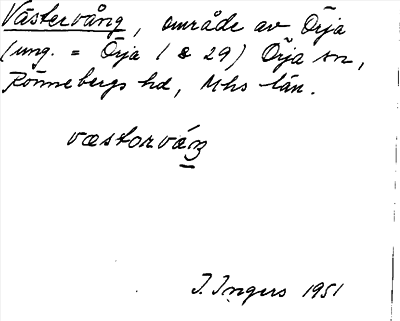 Västervång, område av Örja
(ung. = Örja 1 & 29) Örja sn,
Rönnebergs hd, Mhs län.
væstərváŋ
I. Ingers 1951